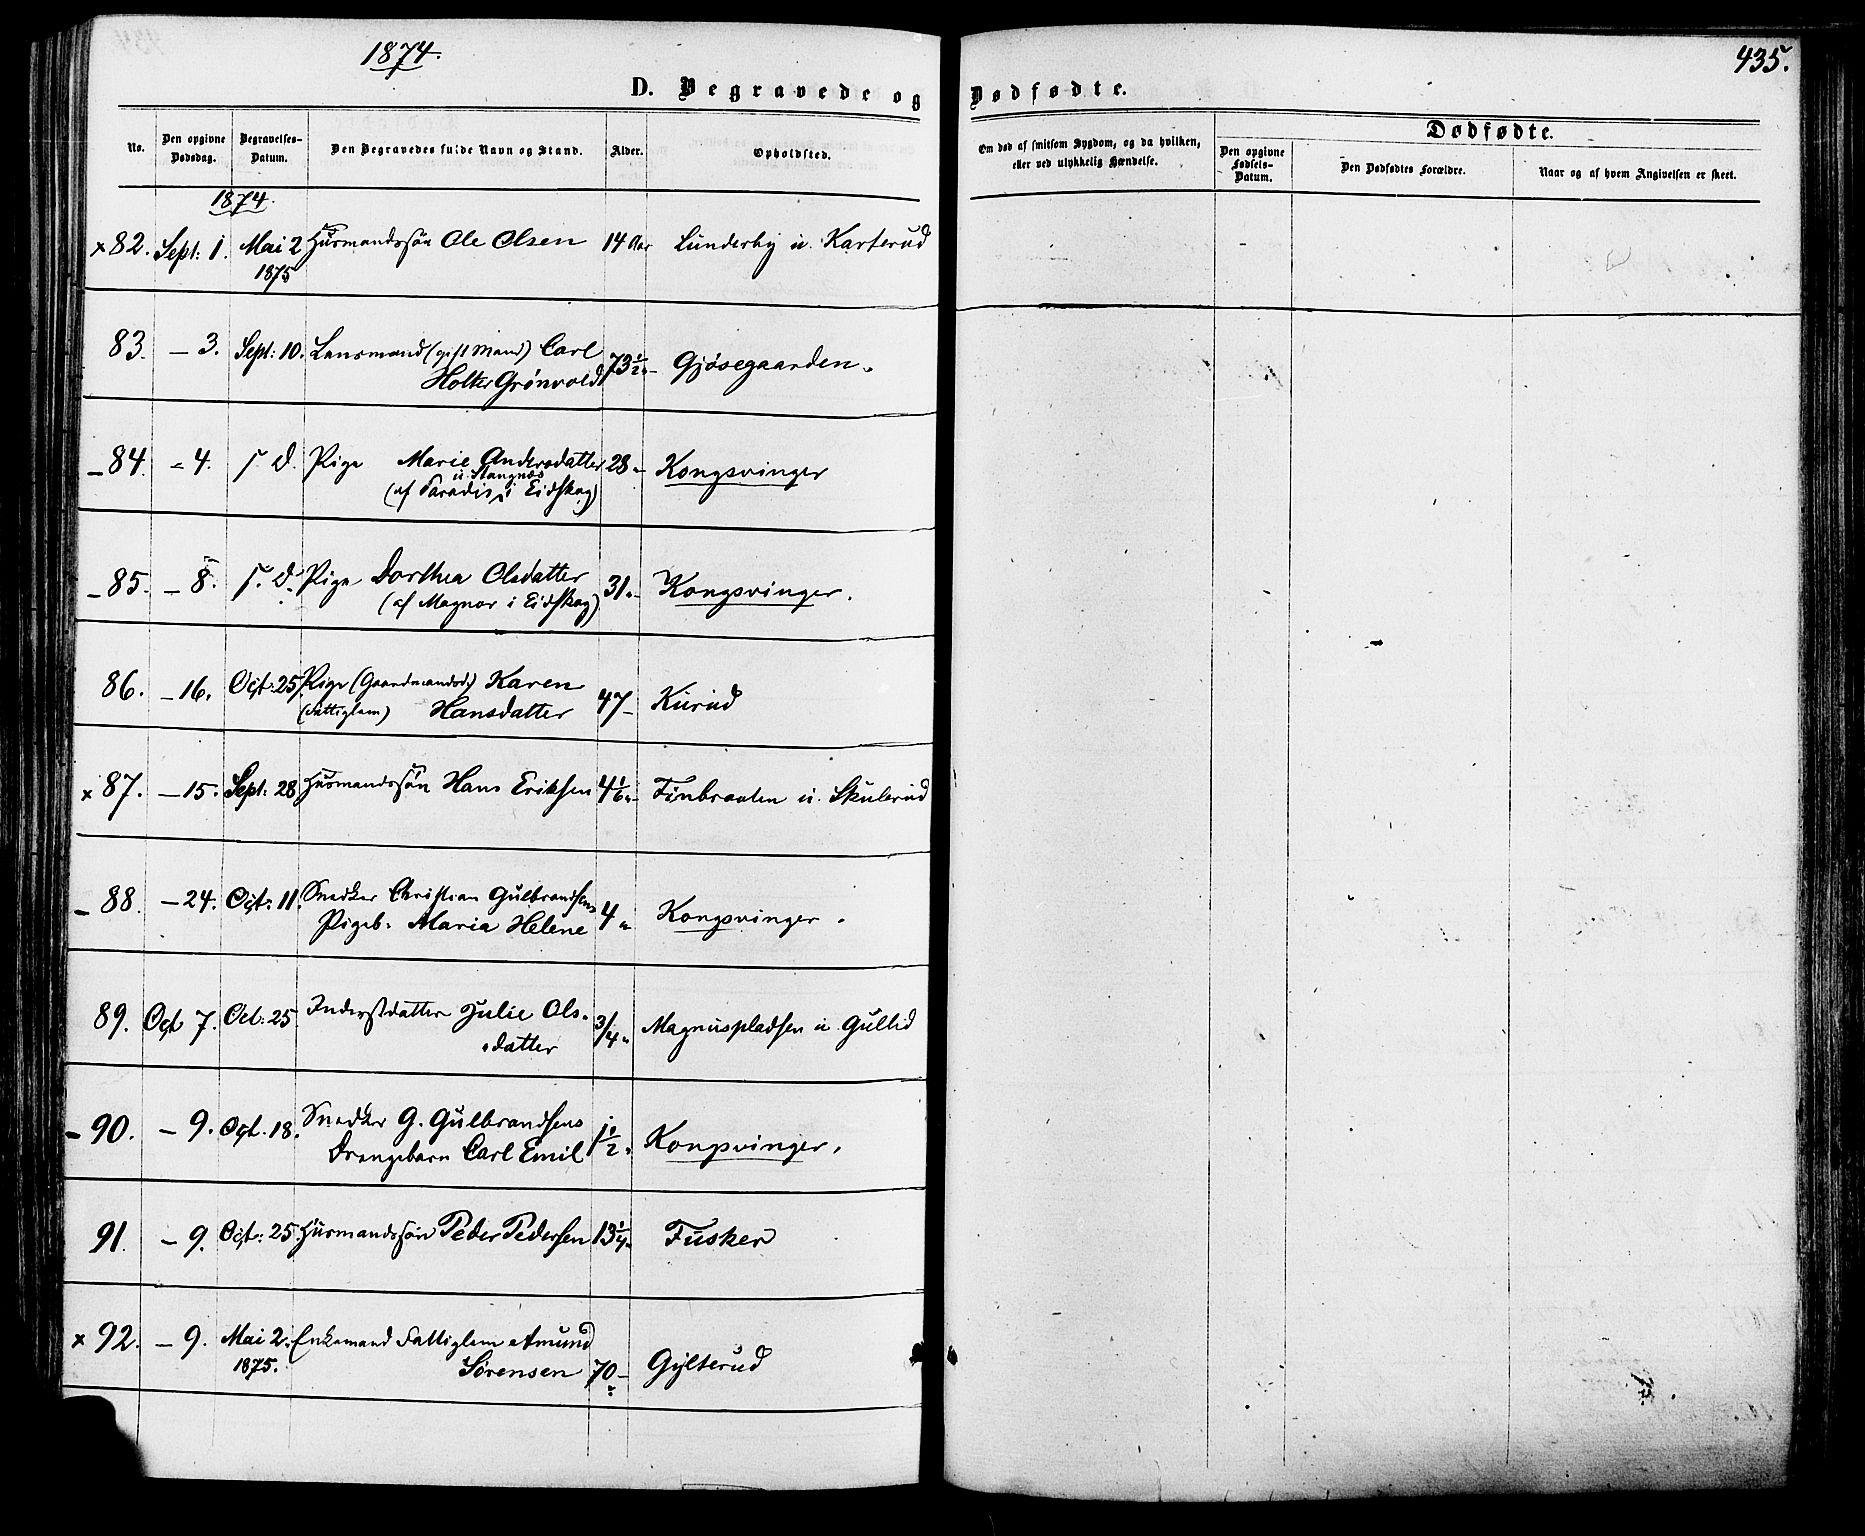 1874.
435.
D. Begravede og Dødfødte.
Dødfødte.
No.
Den opgivne Dødsdag.
Begravelses-Datum.
Den Begravedes fulde Navn og Stand.
Alder.
Opholdsted.
Om død af smitsom Sygdom, og da hvilken, eller ved ulykkelig Hændelse.
Den opgivne Fødsels-Datum.
Den Dødfødtes Forældre.
Naar og af hvem Angivelsen er skeet.
1874.
x 82. Sept: 1. Mai 2 Huusmandssøn Ole Olsen 14 Aar Lunderby u. Karterud
1875
83. — 3. Sept: 10. Lensmand (gift Mand) Carl
Holter Grønvold 73 1/2 " Gjøsegaarden.
— 84. — 4. s. D. Pige Marie Andersdatter 28 " Kongsvinger
u. Stangnæs
(af Paradis i Eidskog)
— 85. — 8. s. D. Pige Dorthea Olsdatter 31 " Kongsvinger.
(af Magnor i Eidskog)
86. — 16. Oct: 25. Pige (Gaardmandsd.) Karen
(Fattiglem) Hansdatter 47 — Kurud
x 87. — 15. Sept: 28 Huusmandssøn Hans Eriksen 4 1/6 " u. Skulerud
— 88. — 24. Oct: 11. Snedker Christian Gulbrandsens
Pigeb. Maria Helene 4 " Kongsvinger.
89. Oct 7. Oct: 25 Inderstdatter Julie Ols-
datter 3/4 " Magnuspladsen u. Gullid
— 90. — 9. Oct. 18. Snedker G. Gulbrandsens
Drengebarn Carl Emil 1 1/2 " Kongsvinger.
91. — 9. Oct: 25. Huusmandssøn Peder Pedersen 13 1/4 " Fusker
x 92. — 9. Mai 2. Enkemand Fattiglem Amund
1875. Sørensen 70 — Gylterud